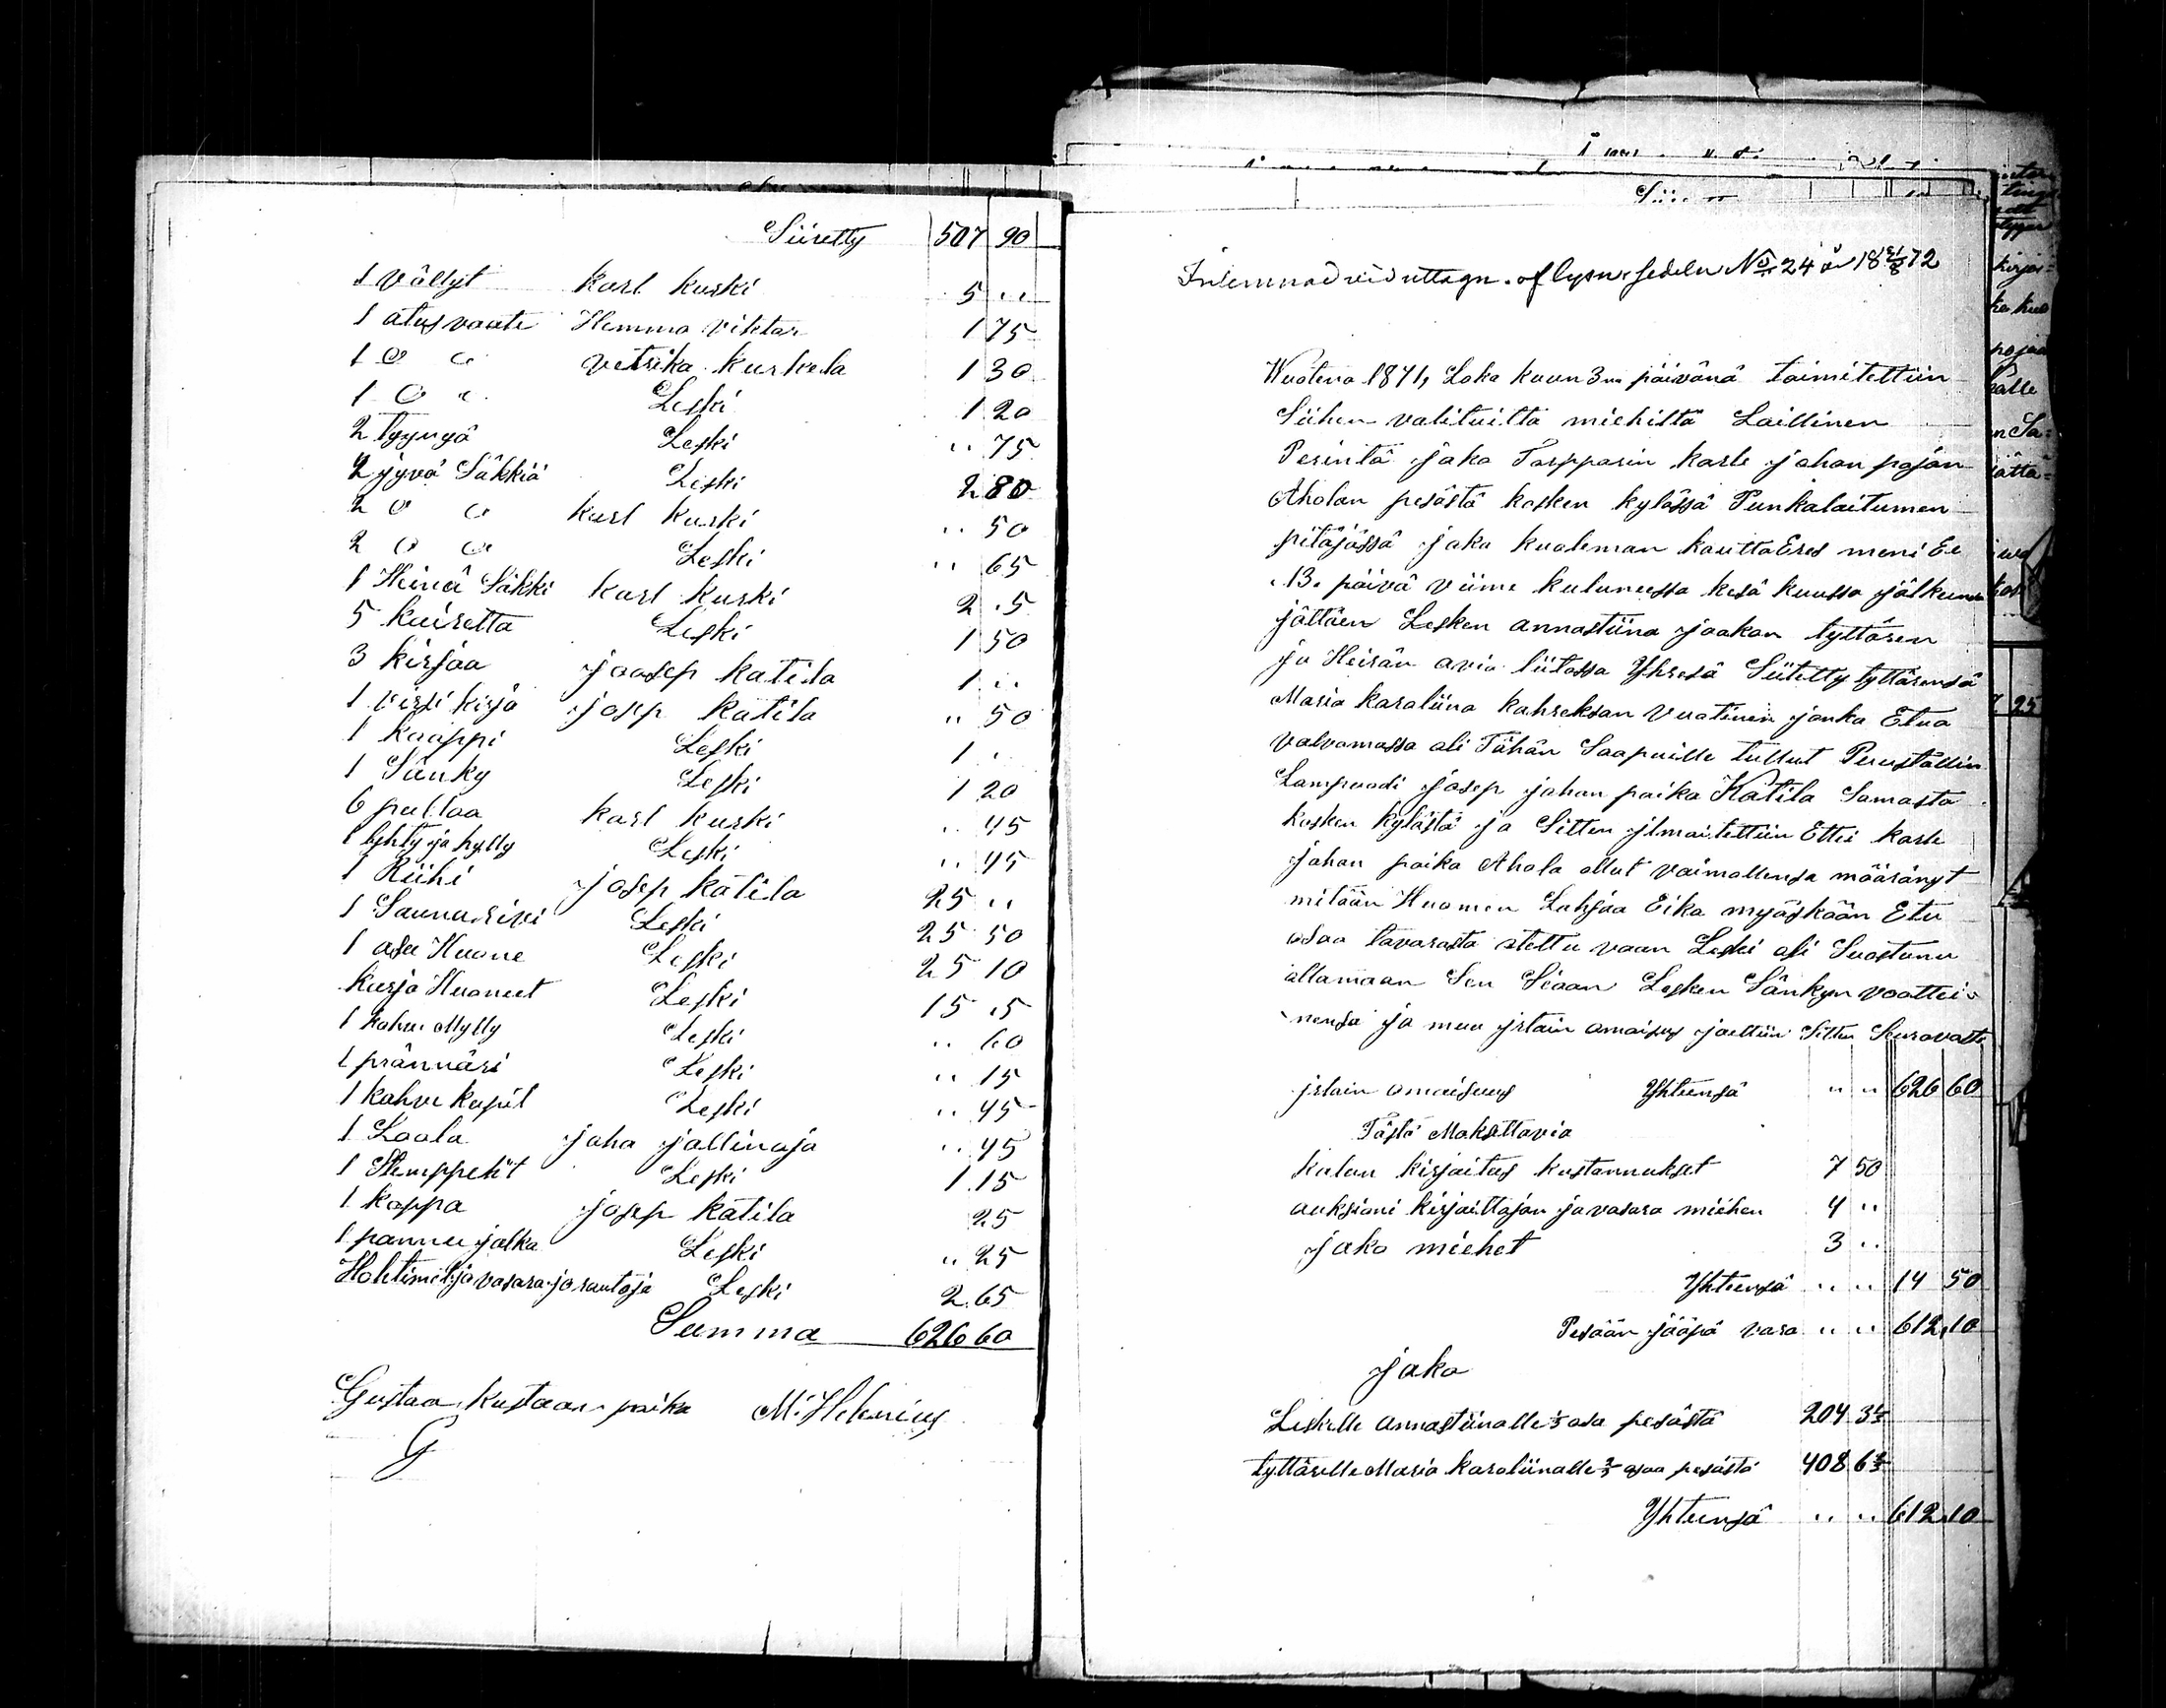 Siiretty 507 90
1 Vällyt karl kurki 5 "
1 alusvaate Hemmo Vihtar 1 75
1 " " vetrika kurkela 1 30
1 " " Leski 1 20
2 tyynyä Leski " 75
2 jyvä Säkkiä Leski 2 80
2 " " karl kurki " 50
2 " " Leski " 65
1 Heinä Säkki karl kurki 2 .5
5 kuiretta Leski 1 50
3 kirjaa joosep katila 1 "
1 virsi kirja josep katila " 50
1 kaappi Leski 1 "
1 Sänky Leski 1 20
6 pulloa karl kurki " 45
1 lyhty ja hylly Leski " 45
1 Riihi josep katila 25 "
1 Sauna Leski 25 50
1 asu Huone Leski 25 10
kurja Huoneet Leski 15 .5
1 kahvi Mylly Leski " 60
1 prännäri Leski " 15
1 kahve kupit Leski " 45
1 Laala juha jallinoja " 45
1 Leski 1 15
1 kappa josep katila 25
1 pannu jalka Leski " 25
Hohtimet ja vasara ja rautoja Leski 2.65
Summa 626 60
Gustaa kustaan poika M: Helenius
G
Siir
Inlemnad vid uttagn. af lysn. sedeln No 24 år 18 21/8 72
Wuotena 1871, Loka kuun 3na päivänä toimitettiin
Siihen valituilta miehiltä Laillinen
Perintö jako Torpparin karle johan pojan
Aholan pesästä kosken kylässä Punkalaitumen
pitäjässä joka kualeman kautta Eres meni Ee
.13. päivä viime kuluneessa kesä kuussa jälkeensä
jättäen Lesken annastiina jaakon tyttären
ja Heirän avio liitossa Yhresä Siitetty tyttärensä
Maria karaliina kahreksan vuatinen jonka Etua
valvomassa oli Tähän Saapuille tullut Perustållin
Lampuodi josep johan poika Katila Samasta
kosken kylästä ja Sitten jlmoitettiin Ettei karle
johan poika Ahola ollut vaimollensa määrännyt
mitään Huomen Lahjaa Eikä myöskään Etu
osaa tavarasta otettu vaan Leski oli Suostunu
ottamaan Sen Siaan Lesken Sänkyn voattei-
nensa ja muu jrtain omaisus jaettiin Sitten Seuravasti
jrtain omaisuus Yhteensä " " 626 60
Tästä Maksettavia
kalun kirjoitus kustannukset 7 50
auksioni kirjoittajan ja vasara miehen 4 "
jako miehet 3 "
Yhteensä " " 14 50
Pesään jääpä vara " " 612,10
jako
Leskelle annastiinalle 1/3 osa pesästä 204 3 1/3
tyttärelle Maria karaliinalle 2/3 osaa pesästä 408 6 2/3
Yhteensä " " 612.10